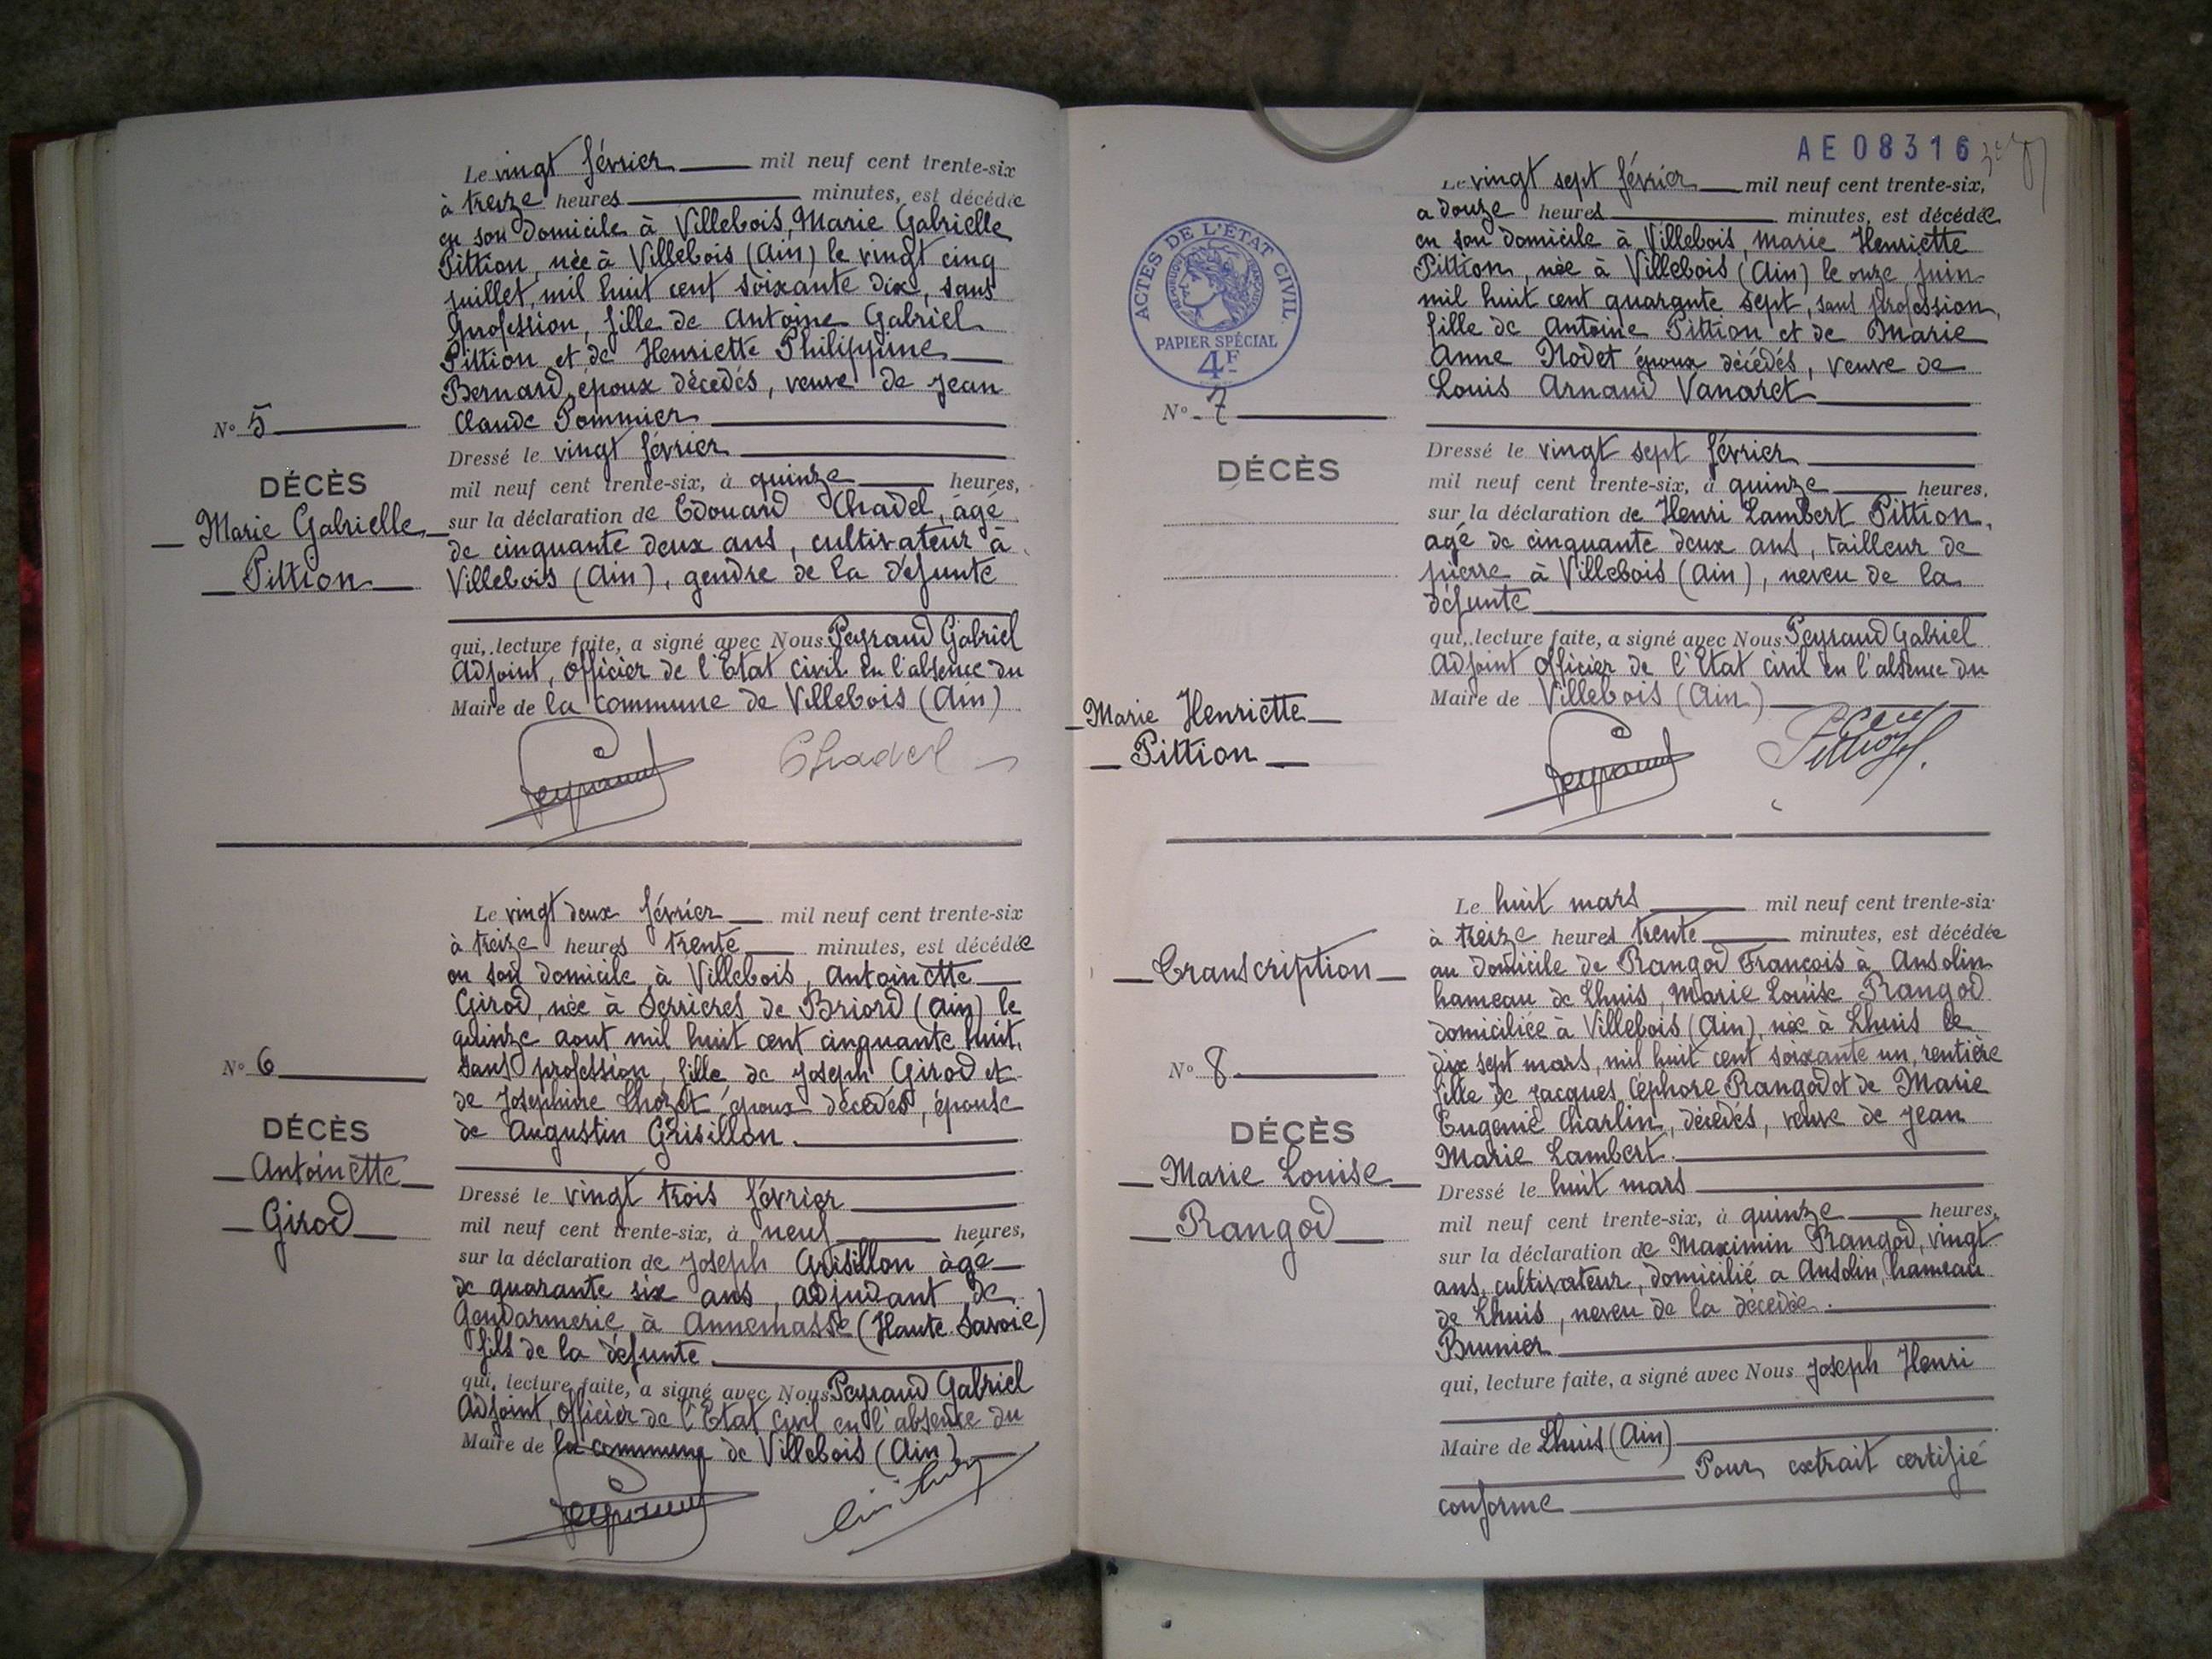 Le vingt février mil neuf cent trente-six
à treize heures minutes, est décédée
en son domicile à Villebois, Marie Gabrielle
Pittion, née à Villebois (Ain) le vingt cinq
juillet, mil huit cent soixante dix, sans
profession, fille de Antoine Gabriel
Pittion et de Henriette Philippine
Bernard, époux décédés, veuve de Jean
Claude Pommier
N° 5
Dressé le vingt février
mil neuf cent trente-six, à quinze heures,
DÉCÈS
Marie Gabrielle
Pittion
sur la déclaration de Edouard Chadel, âgé
de cinquante deux ans, cultivateur à
Villebois (Ain), gendre de la défunte
qui, lecture faite, a signé avec Nous Peyraud Gabriel
Adjoint, officier de l'Etat civil en l'absence du
Maire de la commune de Villebois (Ain)
Peyraud
Chadel
Le vingt deux février mil neuf cent trente-six
à treize heures trente minutes, est décédée
en son domicile à Villebois, Antoinette
Girod, née à Serrières de Briord (Ain) le
quinze aout mil huit cent cinquante huit,
sans profession, fille de Joseph Girod et
de Josephine Chozet, époux décédés, épouse
de Augustin Grisillon.
N° 6
DÉCÈS
Antoinette
Girod
Dressé le vingt trois février
mil neuf cent trente-six, à neuf heures,
sur la déclaration de Joseph Grisillon âgé
de quarante six ans, adjudant de
Gendarmerie à Annemasse (Haute Savoie)
fils de la défunte.
qui, lecture faite, a signé avec Nous Peyraud Gabriel
Adjoint, officier de l'Etat civil en l'absence du
Maire de la commune de Villebois (Ain)
Peyraud
AE08316
ACTES DE L'ÉTAT CIVIL
RÉPUBLIQUE FRANÇAISE
PAPIER SPÉCIAL
4F
Le vingt sept février mil neuf cent trente-six,
a douze heures minutes, est décédée
en son domicile à Villebois, Marie Henriette
Pittion, née à Villebois (Ain) le onze juin
mil huit cent quarante sept, sans profession,
fille de Antoine Pittion et de Marie
Anne Nodet époux décédés, veuve de
Louis Arnaud Vanaret
N° 7
DÉCÈS
Marie Henriette
Pittion
Dressé le vingt sept février
mil neuf cent trente-six, à quinze heures,
sur la déclaration de Henri Lambert Pittion,
agé de cinquante deux ans, tailleur de
pierre à Villebois (Ain), neveu de la
défunte
qui, lecture faite, a signé avec Nous Peyraud Gabriel
Adjoint officier de l'Etat civil en l'absence du
Maire de Villebois (Ain)
Peyraud
Pittion
Le huit mars mil neuf cent trente-six
à treize heures trente minutes, est décédée
au domicile de Rangod François à Ansolin
hameau de Lhuis, Marie Louise Rangod
domiciliée à Villebois (Ain), née à Lhuis le
dix sept mars, mil huit cent soixante un, rentière
fille de Jacques Céphore Rangod et de Marie
Eugénie Charlin, décédés, veuve de Jean
Marie Lambert.
Transcription
N° 8
DÉCÈS
Marie Louise
Rangod
Dressé le huit mars
mil neuf cent trente-six, à quinze heures,
sur la déclaration de Maximin Rangod, vingt
ans, cultivateur, domicilié a Ansolin, hameau
de Lhuis, neveu de la décédée.
Brunier
qui, lecture faite, a signé avec Nous Joseph Henri
Maire de Lhuis (Ain)
Pour extrait certifié
conforme